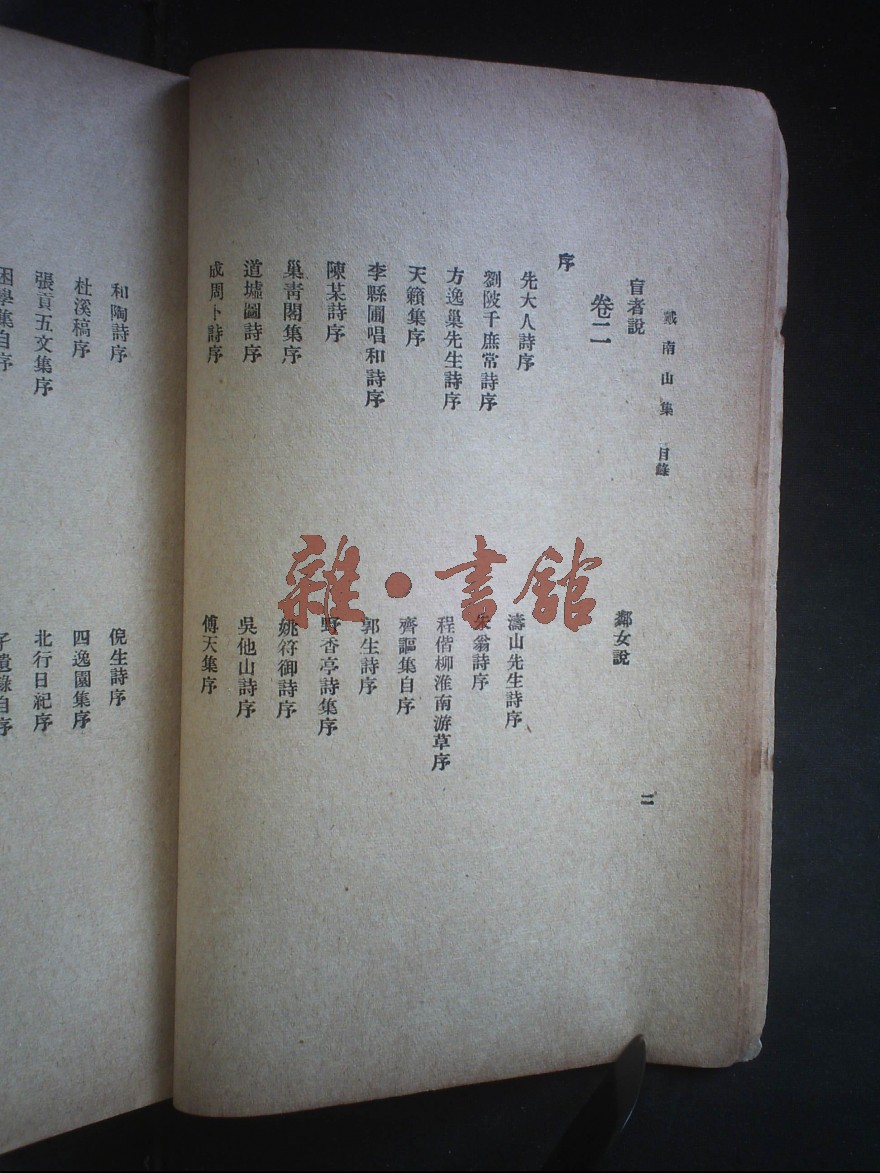 戴南山集 目錄
盲者說
鄰女說
二
卷二
序
先大人詩序
濤山先生詩序
劉陂千庶常詩序
朱翁詩序
方逸巢先生詩序
程偕柳淮南游草序
天籟集序
齊謳集自序
李縣圃唱和詩序
郭生詩序
陳某詩序
野香亭詩集序
巢青閣集序
姚符御詩序
道墟圖詩序
吳他山詩序
成周卜詩序
傅天集序
和陶詩序
倪生詩序
杜溪稿序
四逸園集序
張貢五文集序
北行日紀序
困學集自序
孑遺錄自序
雜·書館